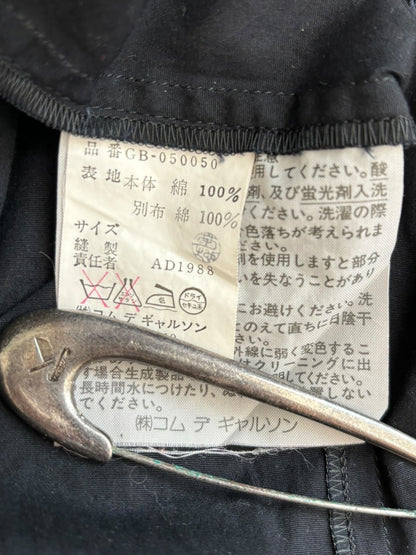 品番GB-050050
表地 本体 綿 100%
別布 綿 100%
サイズ
縫製
責任者 AD1988
ドライ
セキユ系
㈱コム デ ギャルソン
注意
用してください。酸
剤、及び蛍光剤入洗
ください。洗濯の際
色落ちが考えられま
剤を使用しますと部分
いを失なうことがあり
にお避けください。洗
とのえて直ちに日陰干
外線に弱く変色するこ
はクリーニングに出
す場合生成製品
長時間水につけたり、
でください。
㈱コム デ ギャルソン